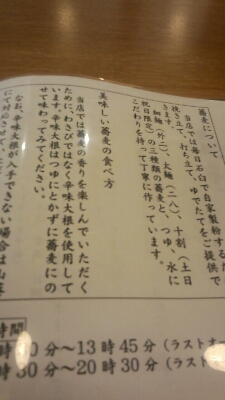 蕎麦について
当店では毎日石臼で自家製粉するた
挽き立て、打ち立て、ゆでたてをご提供で
きます。
細麺（外二）、太麺（二八）、十割（土日
祝日限定）の三種類の蕎麦と、つゆ、水に
こだわりを持って丁寧に作っています。
美味しい蕎麦の食べ方
当店では蕎麦の香りを楽しんでいただく
ために、わさびではなく辛味大根を使用して
います。辛味大根はつゆにとかずに蕎麦にの
せて味わってみてください。
なお、辛味大根が入手できない場合は山
にて対応させて
時間
時30分〜13時45分（ラストオー
時30分〜20時30分（ラスト